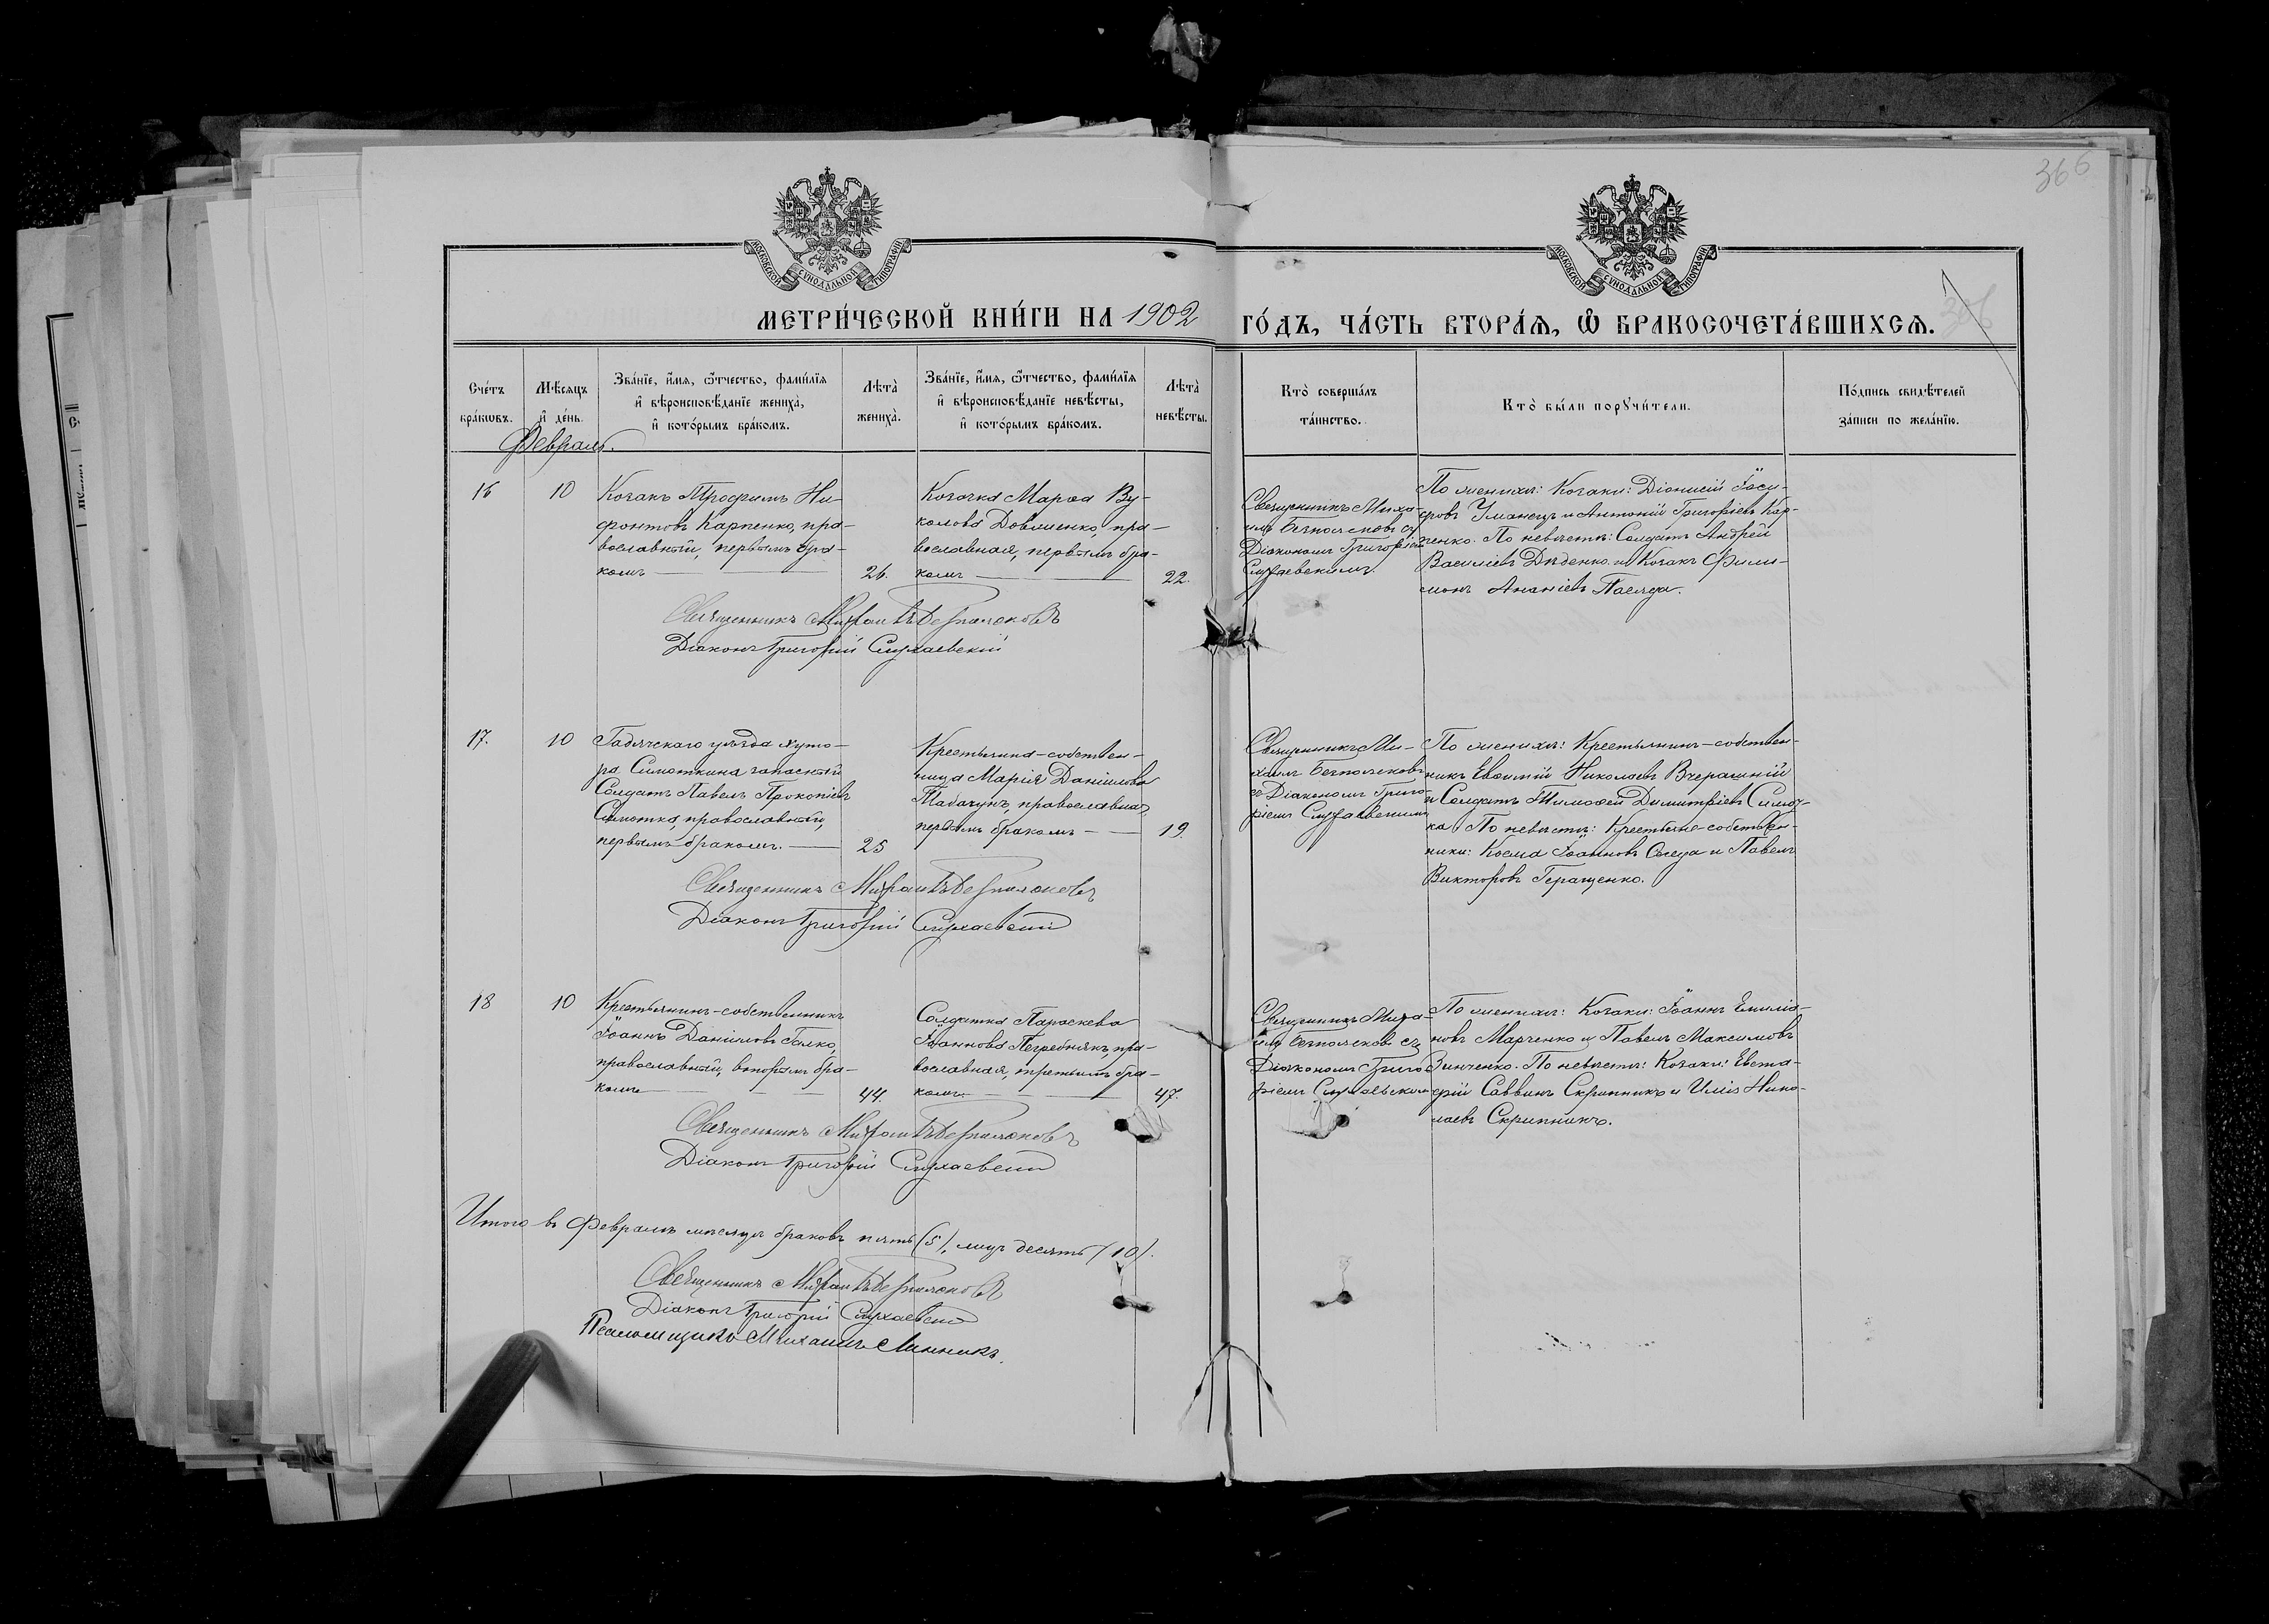 366
МОСКОВСКОЙ СѴНОДАЛЬНОЙ ТИПОГРАФІИ
МОСКОВСКОЙ СѴНОДАЛЬНОЙ ТИПОГРАФІИ
МЕТРИ́ЧЕСКОЙ КНИ́ГИ НА 1902 ГО́ДЪ, ЧА́СТЬ ВТОРА́Ѧ, Ѽ БРАКОСОЧЕТА́ВШИХСѦ.
Сче́тъ бра́кѡвъ.
Мѣ́сяцъ и҆ де́нь.
Зва́нїе, и҆́мѧ, ѻ҆́тчество, фами́лїѧ и҆ вѣроисповѣ́данїе жениха̀, и҆ кото́рымъ бра́комъ.
Лѣта̀ жениха̀.
Зва́нїе, и҆́мѧ, ѻ҆́тчество, фами́лїѧ и҆ вѣроисповѣ́данїе невѣ́сты, и҆ кото́рымъ бра́комъ.
Лѣта̀ невѣ́сты.
Кто̀ соверша́лъ та́инство.
Кто̀ бы́ли порꙋчи́тели.
По́дпись свидѣ́телей за́писи по жела́нїю.
Февраль.
16
10
Козакъ Трофимъ Ни-
фонтовъ Карпенко, пра-
вославный, первымъ бра-
комъ
26.
Козачка Марѳа Ву-
колова Довженко, пра-
вославная, первымъ бра-
комъ
22.
Священникъ Миха-
илъ Безпалчевъ съ
Діакономъ Григоріемъ
Слухаевскимъ.
По женихѣ: Козаки: Діонисій Іоси-
фовъ Уманецъ и Антоній Григоріевъ Кар-
пенко. По невѣстѣ: Солдатъ Андрей
Василіевъ Дяденко и Козакъ Фили-
монъ Ананіевъ
Священникъ Михаилъ
Діаконъ Григорій Слухаевскій
17.
10
Гадячскаго уѣзда хуто-
ра Симоткина запасный
Солдатъ Павелъ Прокопіевъ
православный,
первымъ бракомъ.
25
Крестьянка-собствен-
ница Марія Даніилова
Табачукъ, православная,
первымъ бракомъ
19.
Священникъ Ми-
хаилъ
съ Діакономъ Григо-
ріемъ Слухаевскимъ
По женихѣ: Крестьянинъ-собствен-
никъ Евѳимій Николаевъ Вчерашній
и Солдатъ Тимоѳей Димитріевъ
По невѣстѣ: Крестьяне-собствен-
ники: Косма Іоанновъ и Павелъ
Викторовъ Геращенко.
Священникъ Михаилъ
Діаконъ Григорій Слухаевскій
18
10
Крестьянинъ-собственникъ
Іоаннъ Даніиловъ Галко,
православный, вторымъ бра-
комъ
44.
Солдатка Параскева
Іоаннова Погребнякъ, пра-
вославная, третьимъ бра-
комъ.
47.
Священникъ Миха-
илъ съ
Діакономъ Григо-
ріемъ
По женихѣ: Козаки: Іоаннъ Емилiа-
новъ Марченко и Павелъ Максимовъ
Зинченко. По невѣстѣ: Козаки: Евста-
фій Саввинъ Скрипникъ и Илія Нико-
лаевъ Скрипникъ.
Священникъ Михаилъ
Діаконъ Григорій Слухаевскій
Итого въ Февралѣ мѣсяцѣ браковъ пять (5), лицъ десять (10).
Священникъ Михаилъ
Діаконъ Григорій Слухаевскій
Псаломщикъ Михаилъ Линникъ.